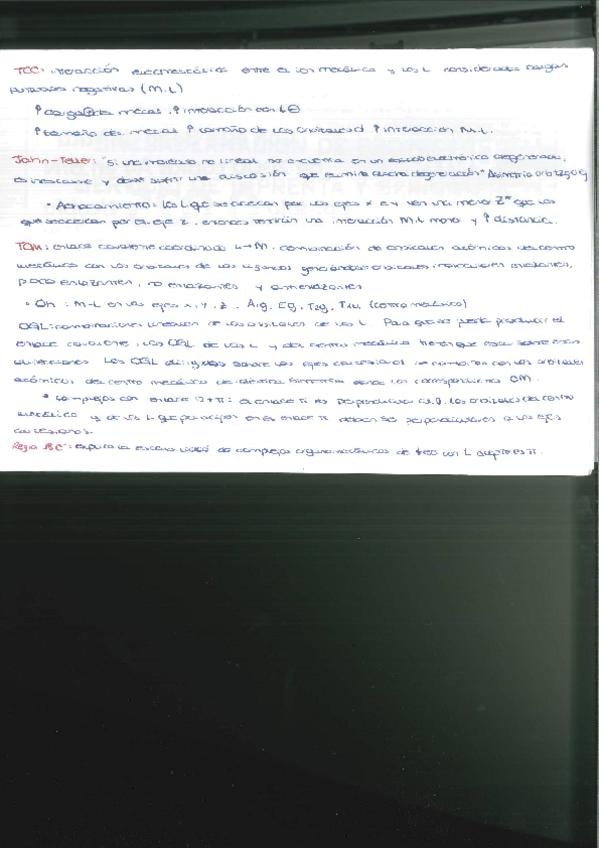 TCC: interacción electrostática entre el ion metálico y los L considerados cargas
puntuales negativas (M-L)
↑ carga ⊕ metal ↑ interacción con L ⊖
↑ tamaño del metal ↑ tamaño de los orbitales d ↑ interacción M-L.
Jahn-Teller: "Si una molécula no lineal se encuentra en un estado electrónico degenerado,
es inestable y debe sufrir una distorsión que elimine dicha degeneración" Asimetría orb t2g o eg
• Achatamiento: los L que se acercan por los ejes x e y ven una menor Z* que los
que se acercan por el eje z, entonces tendrán una interacción M-L menor y ↑ distancia.
TOM: enlace covalente coordinado L→M. combinación de orbitales atómicos del centro
metálico con los orbitales de los ligandos generándose orbitales moleculares enlazantes,
poco enlazantes, no enlazantes y antienlazantes
• Oh: M-L en los ejes x, y, z. A1g, Eg, T2g, T1u (centro metálico)
OGL: combinaciones lineales de los orbitales de los L. Para que se pueda producir el
enlace covalente, los OGL de los L y del centro metálico tienen que estar
Los OGL dirigidos sobre los ejes cartesianos se combinan con los orbitales
atómicos del centro metálico de idéntica simetría para los correspondientes OM.
• Complejos con enlace σ + π: el enlace π es perpendicular al σ. Los orbitales del centro
metálico y de los L que participan en el enlace π deben ser perpendiculares a los ejes
cartesianos.
Regla 18e⁻: explica la estabilidad de complejos organometálicos de con L aceptores π.